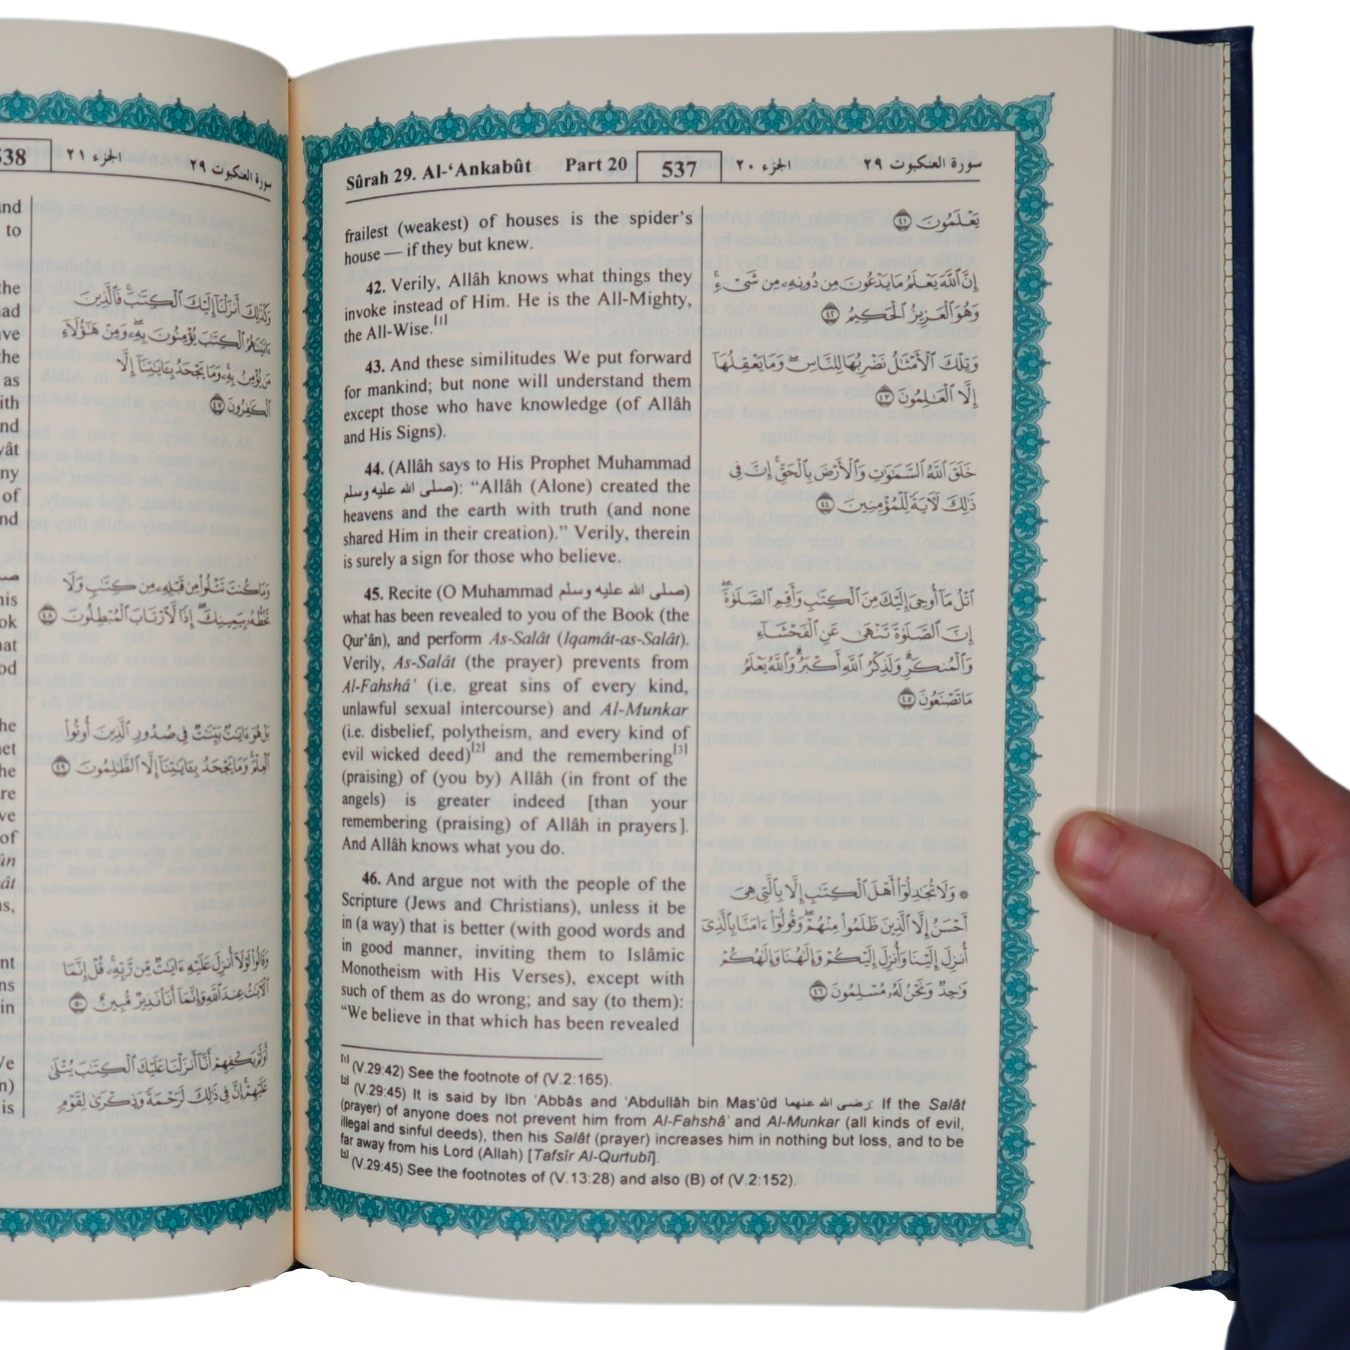 Sûrah 29. Al-‘Ankabût Part 20 537 الجزء ٢٠ سورة العنكبوت ٢٩
frailest (weakest) of houses is the spider’s
house — if they but knew.
42. Verily, Allâh knows what things they
invoke instead of Him. He is the All-Mighty,
the All-Wise.[1]
43. And these similitudes We put forward
for mankind; but none will understand them
except those who have knowledge (of Allâh
and His Signs).
44. (Allâh says to His Prophet Muhammad
صلى الله عليه وسلم): “Allâh (Alone) created the
heavens and the earth with truth (and none
shared Him in their creation).” Verily, therein
is surely a sign for those who believe.
45. Recite (O Muhammad صلى الله عليه وسلم)
what has been revealed to you of the Book (the
Qur’ân), and perform As-Salât (Iqamât-as-Salât).
Verily, As-Salât (the prayer) prevents from
Al-Fahshâ’ (i.e. great sins of every kind,
unlawful sexual intercourse) and Al-Munkar
(i.e. disbelief, polytheism, and every kind of
evil wicked deed)[2] and the remembering[3]
(praising) of (you by) Allâh (in front of the
angels) is greater indeed [than your
remembering (praising) of Allâh in prayers].
And Allâh knows what you do.
46. And argue not with the people of the
Scripture (Jews and Christians), unless it be
in (a way) that is better (with good words and
in good manner, inviting them to Islâmic
Monotheism with His Verses), except with
such of them as do wrong; and say (to them):
“We believe in that which has been revealed
يَعْلَمُونَ ٤١
إِنَّ اللَّهَ يَعْلَمُ مَا يَدْعُونَ مِن دُونِهِ مِن شَيْءٍ
وَهُوَ الْعَزِيزُ الْحَكِيمُ ٤٢
وَتِلْكَ الْأَمْثَٰلُ نَضْرِبُهَا لِلنَّاسِ وَمَا يَعْقِلُهَا
إِلَّا الْعَٰلِمُونَ ٤٣
خَلَقَ اللَّهُ السَّمَٰوَٰتِ وَالْأَرْضَ بِالْحَقِّ إِنَّ فِي
ذَٰلِكَ لَآيَةً لِّلْمُؤْمِنِينَ ٤٤
اتْلُ مَا أُوحِيَ إِلَيْكَ مِنَ الْكِتَٰبِ وَأَقِمِ الصَّلَوٰةَ
إِنَّ الصَّلَوٰةَ تَنْهَىٰ عَنِ الْفَحْشَاءِ
وَالْمُنكَرِ وَلَذِكْرُ اللَّهِ أَكْبَرُ وَاللَّهُ يَعْلَمُ
مَا تَصْنَعُونَ ٤٥
۞ وَلَا تُجَٰدِلُوا أَهْلَ الْكِتَٰبِ إِلَّا بِالَّتِي هِيَ
أَحْسَنُ إِلَّا الَّذِينَ ظَلَمُوا مِنْهُمْ وَقُولُوا ءَامَنَّا بِالَّذِي
أُنزِلَ إِلَيْنَا وَأُنزِلَ إِلَيْكُمْ وَإِلَٰهُنَا وَإِلَٰهُكُمْ
وَٰحِدٌ وَنَحْنُ لَهُ مُسْلِمُونَ ٤٦
[1] (V.29:42) See the footnote of (V.2:165).
[2] (V.29:45) It is said by Ibn ‘Abbâs and ‘Abdullâh bin Mas‘ûd رضى الله عنهما: If the Salât
(prayer) of anyone does not prevent him from Al-Fahshâ’ and Al-Munkar (all kinds of evil,
illegal and sinful deeds), then his Salât (prayer) increases him in nothing but loss, and to be
far away from his Lord (Allah) [Tafsîr Al-Qurtubî].
[3] (V.29:45) See the footnotes of (V.13:28) and also (B) of (V.2:152).
538 الجزء ٢١ سورة العنكبوت ٢٩
وَكَذَٰلِكَ أَنزَلْنَا إِلَيْكَ الْكِتَٰبَ فَالَّذِينَ
ءَاتَيْنَٰهُمُ الْكِتَٰبَ يُؤْمِنُونَ بِهِ وَمِنْ هَٰؤُلَاءِ
مَن يُؤْمِنُ بِهِ وَمَا يَجْحَدُ بِـَٔايَٰتِنَا إِلَّا
الْكَٰفِرُونَ ٤٧
وَمَا كُنتَ تَتْلُوا مِن قَبْلِهِ مِن كِتَٰبٍ وَلَا
تَخُطُّهُ بِيَمِينِكَ إِذًا لَّارْتَابَ الْمُبْطِلُونَ ٤٨
بَلْ هُوَ ءَايَٰتٌ بَيِّنَٰتٌ فِي صُدُورِ الَّذِينَ أُوتُوا
الْعِلْمَ وَمَا يَجْحَدُ بِـَٔايَٰتِنَا إِلَّا الظَّٰلِمُونَ ٤٩
وَقَالُوا لَوْلَا أُنزِلَ عَلَيْهِ ءَايَٰتٌ مِّن رَّبِّهِ قُلْ إِنَّمَا
الْآيَٰتُ عِندَ اللَّهِ وَإِنَّمَا أَنَا نَذِيرٌ مُّبِينٌ ٥٠
أَوَلَمْ يَكْفِهِمْ أَنَّا أَنزَلْنَا عَلَيْكَ الْكِتَٰبَ يُتْلَىٰ
عَلَيْهِمْ إِنَّ فِي ذَٰلِكَ لَرَحْمَةً وَذِكْرَىٰ لِقَوْمٍ